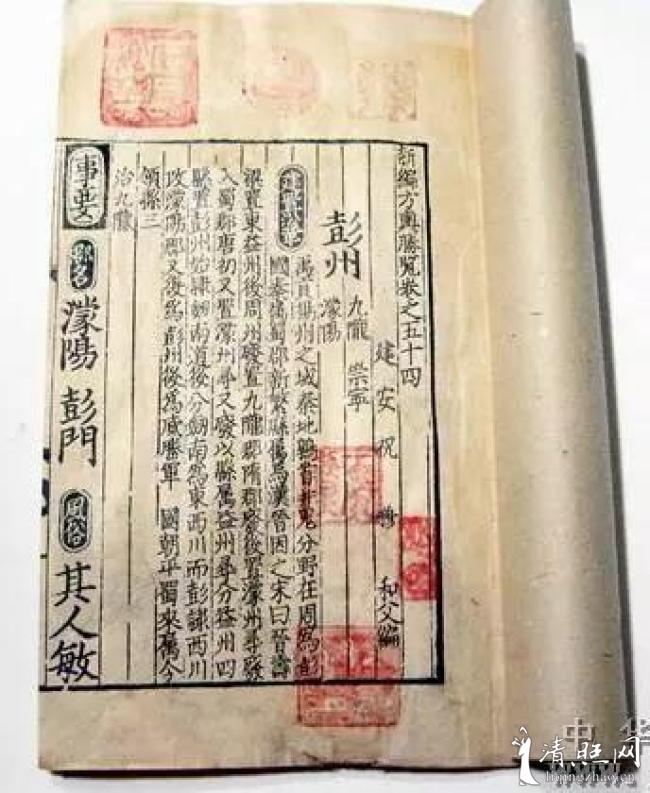 新編方輿勝覽卷之五十四
建安祝 穆 和父編
彭州
九隴 崇寧
濛陽
建置沿革
禹貢梁州之域秦地鶉首井鬼分野在周為彭
國秦為蜀郡新繁縣屬焉漢晉因之宋曰晉壽
梁置東益州後周州廢置九隴郡隋郡廢後置濛州尋廢
入蜀郡唐初又置濛州尋又廢以縣屬益州尋分益州四
縣置彭州始隸劒南道後分劒南為東西川而彭隸西川
改濛陽郡又復為彭州後為威勝軍 國朝平蜀來屬今
領縣三
治九隴
事要
郡名
濛陽 彭門
風俗
其人敏
中华
清旺网